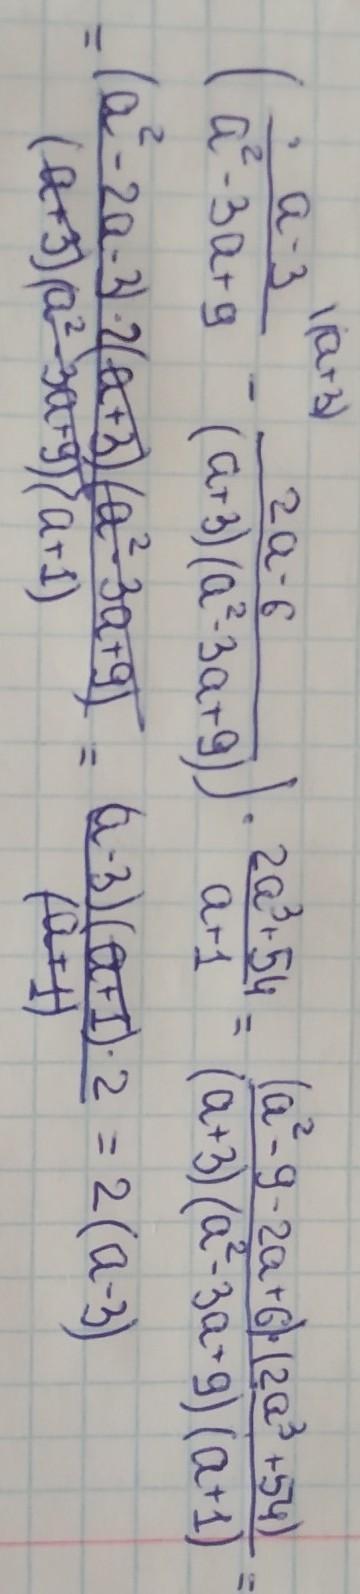 ( (a-3)/(a²-3a+9) \(a+3) - (2a-6)/((a+3)(a²-3a+9)) ) · (2a³+54)/(a+1) = ((a²-9-2a+6)·(2a³+54))/((a+3)(a²-3a+9)(a+1)) =
= ((a²-2a-3)·2(a+3)(a²-3a+9))/((a+3)(a²-3a+9)(a+1)) = ((a-3)(a+1)·2)/((a+1)) = 2(a-3)